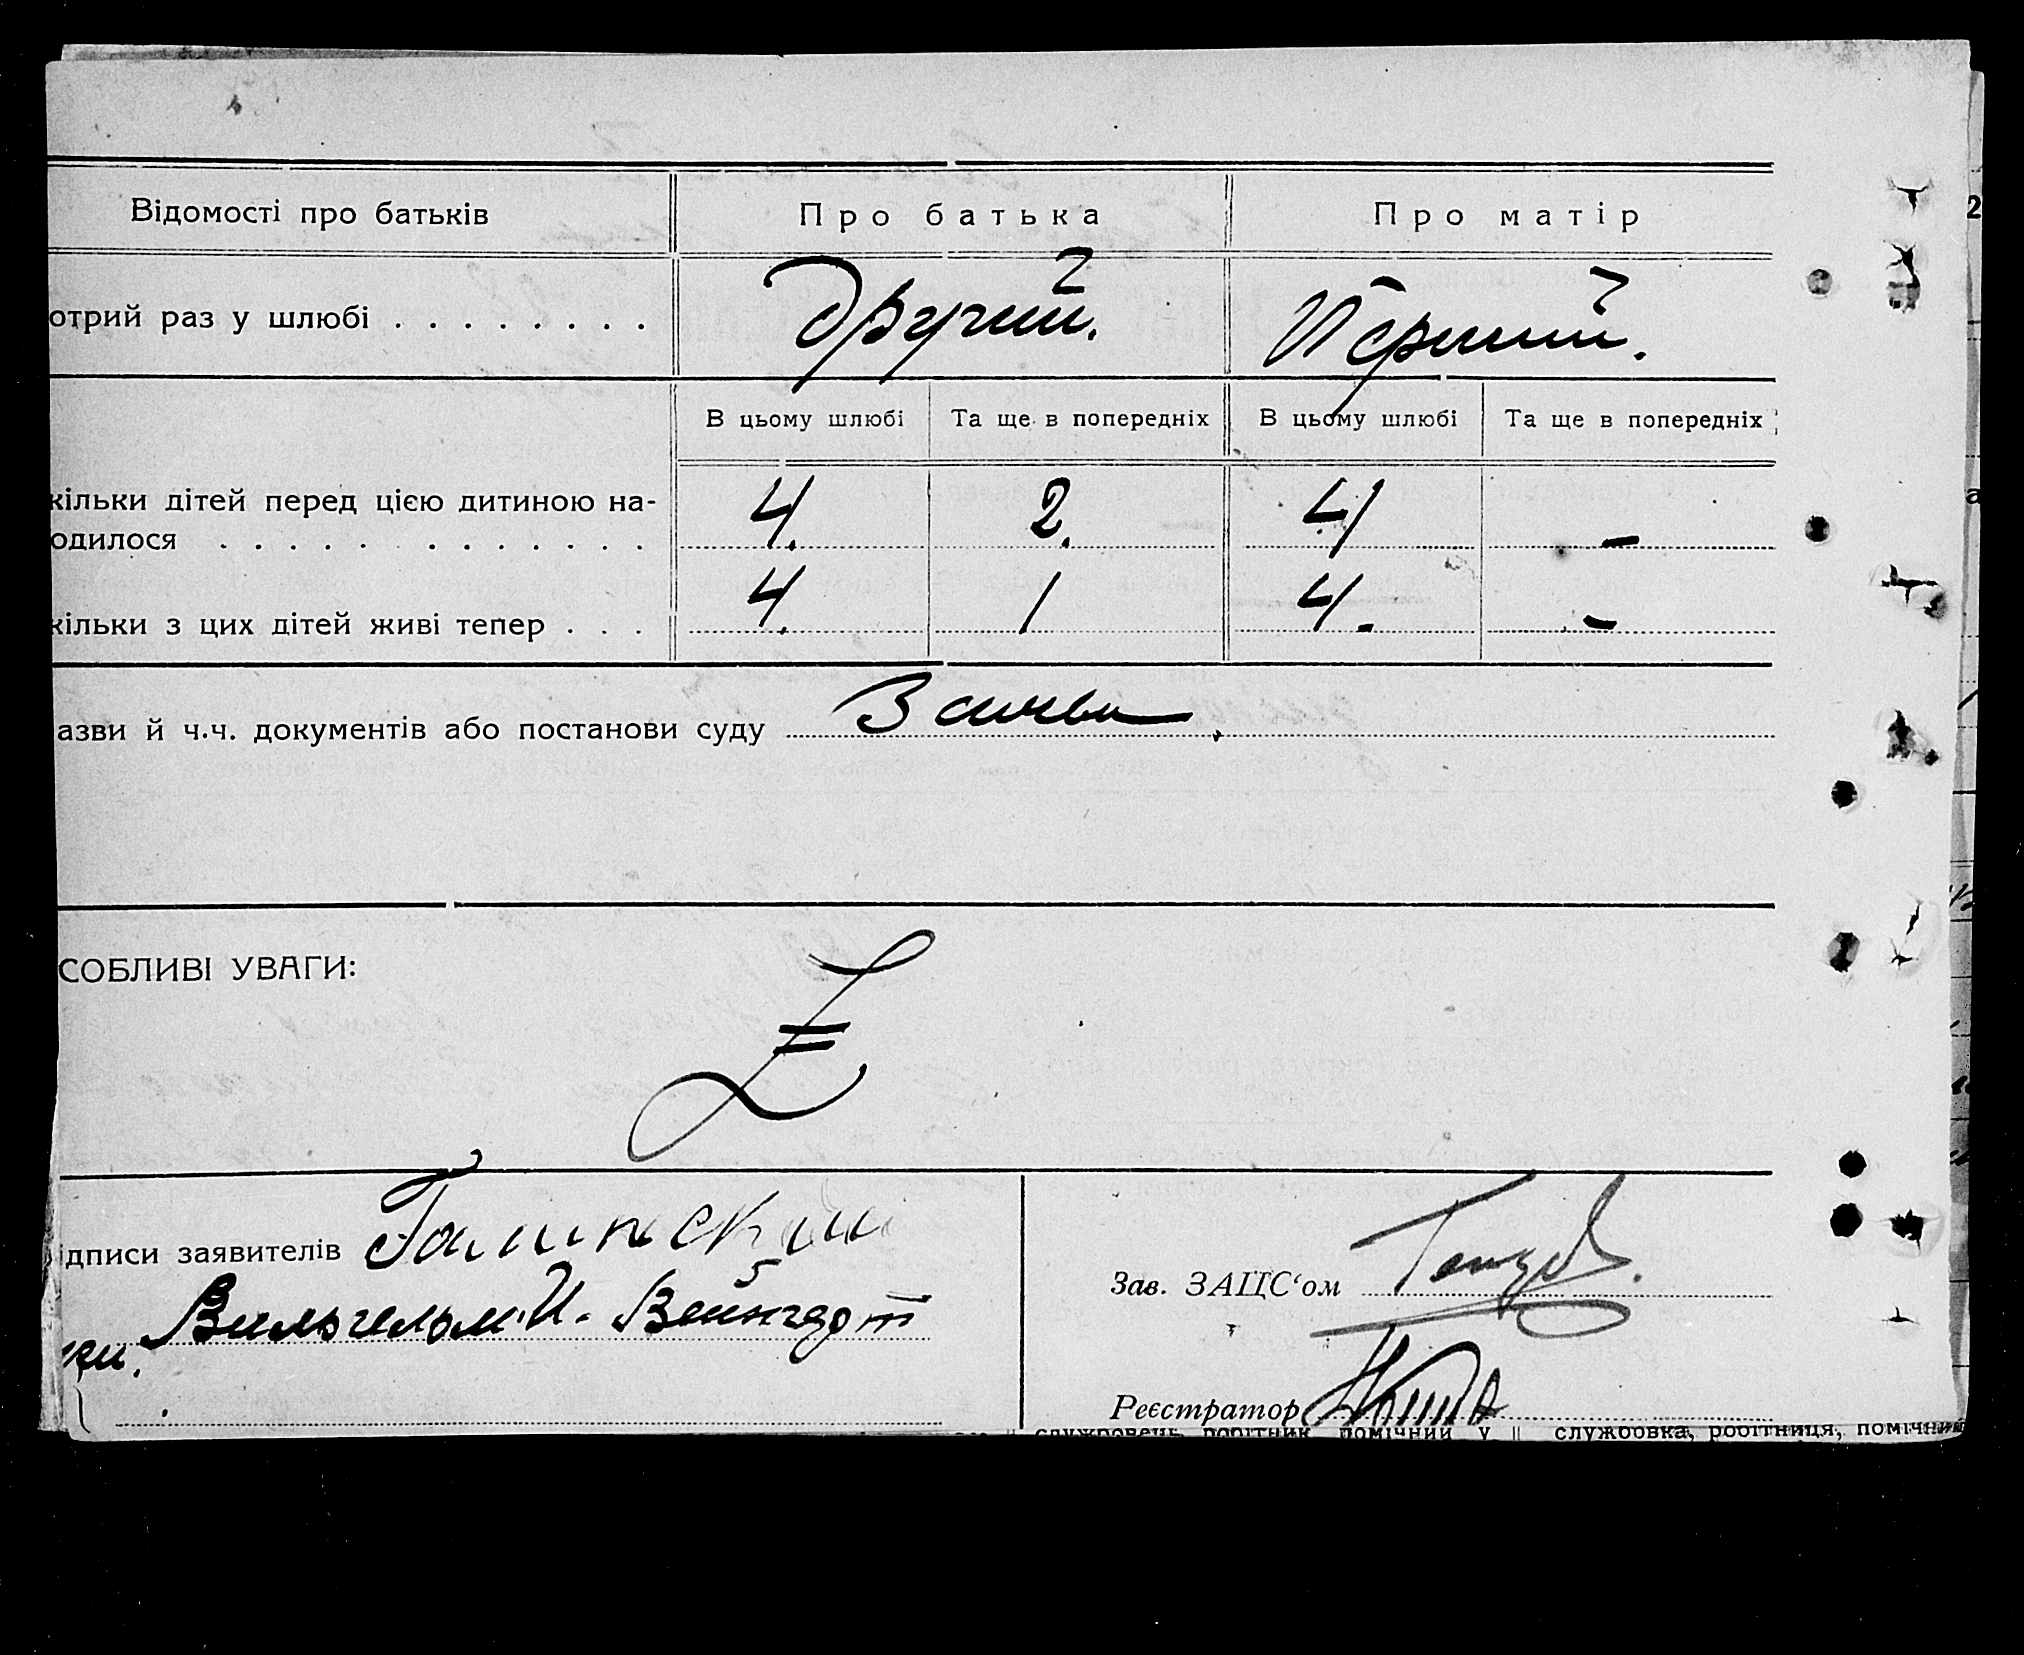 Відомості про батьків Про батька Про матір
отрий раз у шлюбі Другий. Перший.
В цьому шлюбі Та ще в попередніх В цьому шлюбі Та ще в попередніх
кільки дітей перед цією дитиною на-
одилося 4. 2. 4 -
кільки з цих дітей живі тепер 4. 1 4. -
азви й ч.ч. документів або постанови суду З слів
СОБЛИВІ УВАГИ:
ідписи заявителів
Вильгельм И. Вейнгарт
Зав. ЗАЦС‘ом
Реєстратор
службовець, робітник, помічний у службовка, робітниця, помічни